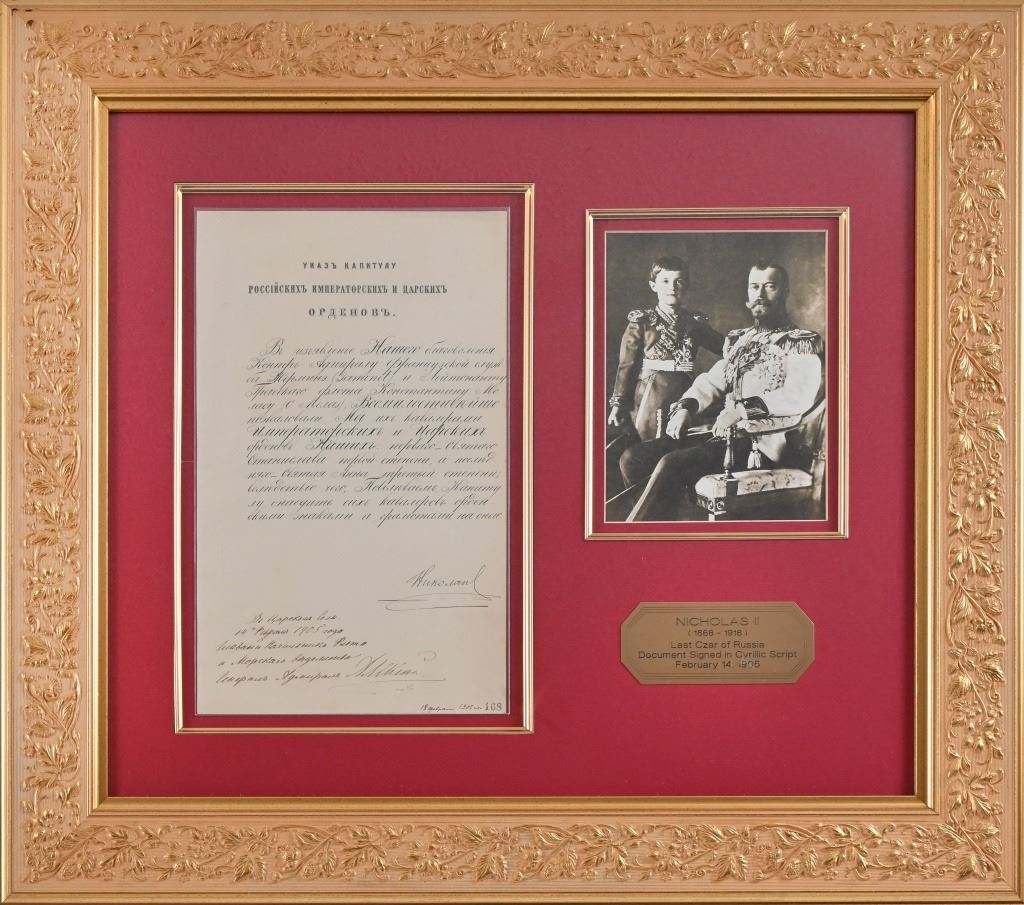 УКАЗЪ КАПИТУЛУ
РОССІЙСКИХЪ ИМПЕРАТОРСКИХЪ И ЦАРСКИХЪ
ОРДЕНОВЪ.
Въ изъявленіе Нашего благоволенія
Контръ Адмиралу Французской служ
бы и Лейтенанту
Греческаго флота Константину Ме
ласу Всемилостивѣйше
пожаловали Мы ихъ кавалерами
Императорскихъ и Царскихъ
орденовъ Нашихъ, перваго-Святаго
Станислава первой степени, а послѣд
няго-Святыя Анны третьей степени;
вслѣдствіе чего, Повелѣваемъ Капиту
лу снабдить сихъ кавалеровъ орден
скими знаками и грамотами на оные.
Николай
Въ Царскомъ Селѣ.
14 Февраля 1905 года
Главный Начальникъ Флота
и Морского Вѣдомства
Генералъ Адмиралъ
18 февраля 1905 168
NICHOLAS II
(1868 - 1918)
Last Czar of Russia
Document Signed in Cyrillic Script
February 14, 1905